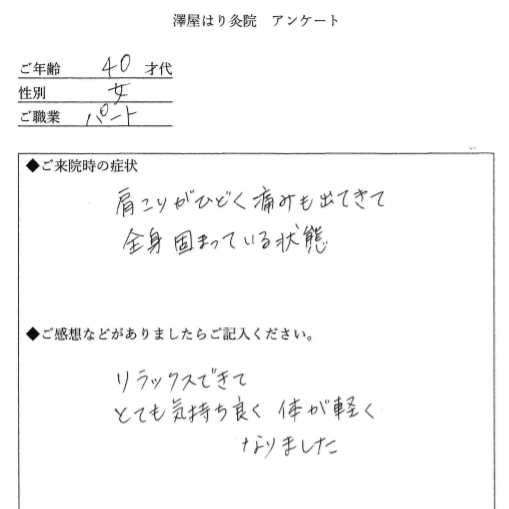 澤屋はり灸院 アンケート
ご年齢 40 才代
性別 女
ご職業 パート
◆ご来院時の症状
肩こりがひどく痛みも出てきて
全身固まっている状態
◆ご感想などがありましたらご記入ください。
リラックスできて
とても気持ち良く 体が軽く
なりました